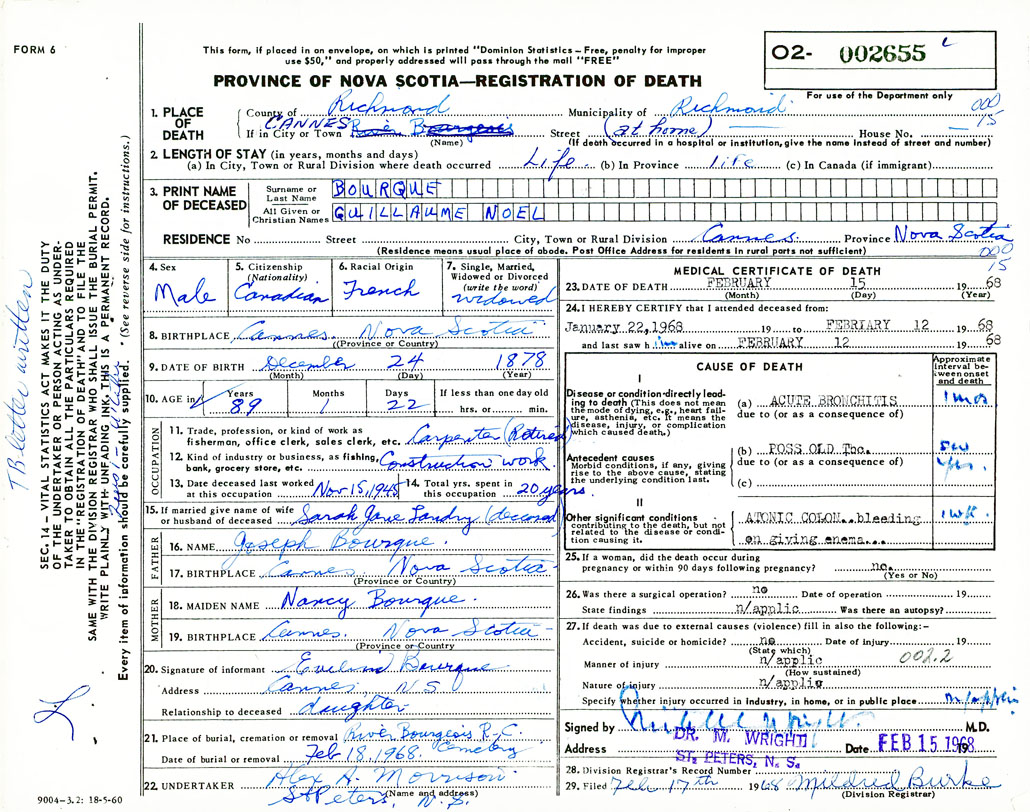 FORM 6
This form, if placed in an envelope, on which is printed "Dominion Statistics – Free, penalty for improper
use $50," and properly addressed will pass through the mail "FREE"
PROVINCE OF NOVA SCOTIA—REGISTRATION OF DEATH
O2- 002655
For use of the Department only
1. PLACE OF DEATH
County of Richmond Municipality of Richmond 000
15
If in City or Town CANNES River Bourgeois Street (at home) House No.
(Name) (If death occurred in a hospital or institution, give the name instead of street and number)
2. LENGTH OF STAY (in years, months and days)
(a) In City, Town or Rural Division where death occurred Life (b) In Province life (c) In Canada (if immigrant)
3. PRINT NAME OF DECEASED
Surname or Last Name BOURQUE
All Given or Christian Names GUILLAUME NOEL
RESIDENCE No Street City, Town or Rural Division Cannes. Province Nova Scotia
(Residence means usual place of abode. Post Office Address for residents in rural parts not sufficient) 000
15
4. Sex
Male
5. Citizenship
(Nationality)
Canadian
6. Racial Origin
French
7. Single, Married,
Widowed or Divorced
(write the word)
widowed
8. BIRTHPLACE Cannes, Nova Scotia
(Province or Country)
9. DATE OF BIRTH December 24 1878
(Month) (Day) (Year)
10. AGE in Years Months Days If less than one day old
89 1 22 hrs. or min.
OCCUPATION
11. Trade, profession, or kind of work as
fisherman, office clerk, sales clerk, etc. Carpenter (Retired)
12. Kind of industry or business, as fishing,
bank, grocery store, etc. Construction work
13. Date deceased last worked
at this occupation Nov 15, 1945
14. Total yrs. spent in
this occupation 20 years.
15. If married give name of wife
or husband of deceased Sarah Jane Landry (deceased)
FATHER
16. NAME Joseph Bourque.
17. BIRTHPLACE Cannes Nova Scotia
(Province or Country)
MOTHER
18. MAIDEN NAME Nancy Bourque.
19. BIRTHPLACE Cannes. Nova Scotia
(Province or Country)
20. Signature of informant Bourque
Address Cannes, N S
Relationship to deceased daughter
21. Place of burial, cremation or removal River Bourgeois R.C. Cemetery
Date of burial or removal Feb 18, 1968.
22. UNDERTAKER Alex H. Morrison
(Name and address)
St Peters, N. S.
9004–3.2: 18-5-60
MEDICAL CERTIFICATE OF DEATH
23. DATE OF DEATH FEBRUARY 15 1968
(Month) (Day) (Year)
24. I HEREBY CERTIFY that I attended deceased from:
January 22,1968 19 to FEBRIARY 12 1968
and last saw h im alive on FEBRUARY 12 1968
CAUSE OF DEATH
Approximate
interval be-
tween onset
and death
I
Disease or condition directly lead-
ing to death (This does not mean
the mode of dying, e.g., heart fail-
ure, asthenia, etc. It means the
disease, injury, or complication
which caused death.)
(a) ACUTE BRONCHITIS 1 mos
due to (or as a consequence of)
Antecedent causes
Morbid conditions, if any, giving
rise to the above cause, stating
the underlying condition last.
(b) POSS OLD Tbc. yrs.
due to (or as a consequence of)
(c)
II
Other significant conditions
contributing to the death, but not
related to the disease or condi-
tion causing it.
ATONIC COLON..bleeding 1 wk.
on giving enema...
25. If a woman, did the death occur during
pregnancy or within 90 days following pregnancy? no.
(Yes or No)
26. Was there a surgical operation? no Date of operation 19
State findings n/applic Was there an autopsy?
27. If death was due to external causes (violence) fill in also the following:–
Accident, suicide or homicide? no Date of injury 19
(State which)
Manner of injury n/applic 002.2
(How sustained)
Nature of injury n/applic
Specify whether injury occurred in industry, in home, or in public place n/applic
Signed by M.D.
DR. M. WRIGHT
Address ST. PETERS, N. S. Date FEB 15 1968
28. Division Registrar's Record Number
29. Filed Feb 17th 1968 Mildred Burke
(Division Registrar)
SEC. 14 – VITAL STATISTICS ACT MAKES IT THE DUTY
OF THE UNDERTAKER OR PERSON ACTING AS UNDER-
TAKER TO OBTAIN ALL THE PARTICULARS REQUIRED
IN THE "REGISTRATION OF DEATH" AND TO FILE THE
SAME WITH THE DIVISION REGISTRAR WHO SHALL ISSUE THE BURIAL PERMIT.
WRITE PLAINLY WITH UNFADING INK, THIS IS A PERMANENT RECORD.
Every item of information should be carefully supplied. (See reverse side for instructions.)
TB letter written